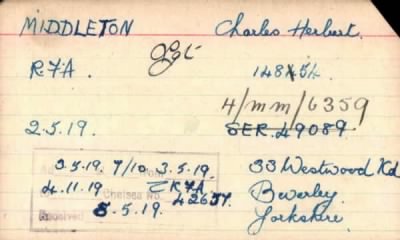 MIDDLETON Charles Herbert.
R.F.A. Sgt 148454
4/MM/6359
2.5.19. SER. 49089.
3.5.19. 7/10. 3.5.19.
4.11.19. Chelsea No. R7A
42657
Received 5.5.19.
33 Westwood Rd
Beverley
Yorkshire.